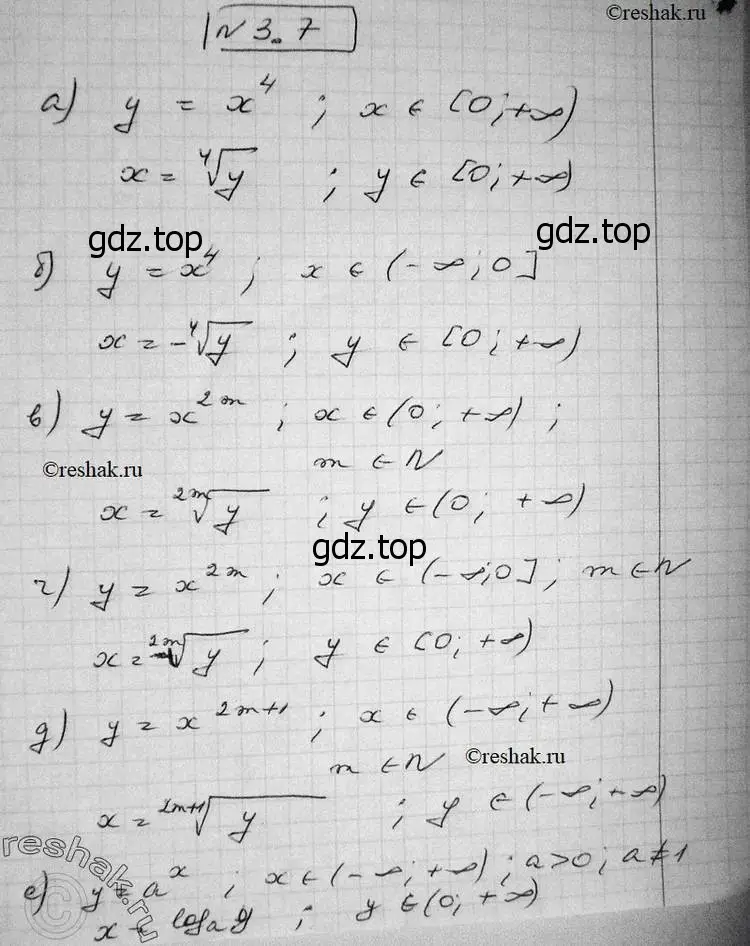 ©reshak.ru
№ 3.7
а) y = x⁴ ; x ∈ [0;+∞)
x = ⁴√y ; y ∈ [0;+∞)
gdz.top gdz.top
б) y = x⁴ ; x ∈ (-∞;0]
x = -⁴√y ; y ∈ [0;+∞)
в) y = x^2m ; x ∈ (0;+∞) ;
©reshak.ru m ∈ N
x = ^2m√y ; y ∈ (0; +∞)
gdz.top
г) y = x^2m ; x ∈ (-∞;0] ; m ∈ N
x = -^2m√y ; y ∈ [0;+∞)
д) y = x^2m+1 ; x ∈ (-∞;+∞)
m ∈ N ©reshak.ru
x = ^2m+1√y ; y ∈ (-∞;+∞)
reshak.ru
е) y = a^x ; x ∈ (-∞;+∞) ; a>0; a≠1
x = logₐy ; y ∈ (0;+∞)